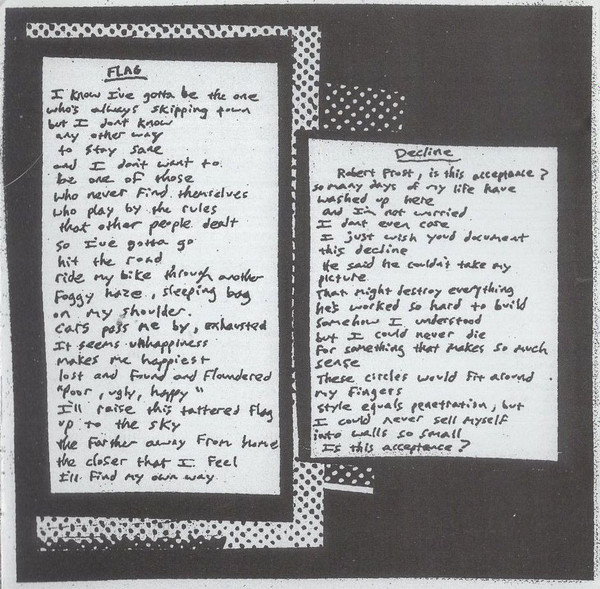 FLAG
I know I've gotta be the one
who's always skipping town
but I don't know
any other way
to stay sane
and I don't want to
be one of those
who never find themselves
who play by the rules
that other people dealt
so I've gotta go
hit the road
ride my bike through another
foggy haze, sleeping bag
on my shoulder.
cars pass me by, exhausted
It seems unhappiness
makes me happiest
lost and found and floundered
"Poor, ugly, happy"
I'll raise this tattered flag
up to the sky
the farther away from home
the closer that I feel
I'll find my own way
Decline
Robert Frost, is this acceptance?
so many days of my life have
washed up here
and I'm not worried
I don't even care
I just wish you'd document
this decline
He said he couldn't take my
picture
That might destroy everything
he's worked so hard to build
somehow I understood
but I could never die
For something that makes so much
sense
These circles would fit around
my fingers
style equals penetration, but
I could never sell myself
into walls so small
Is this acceptance?